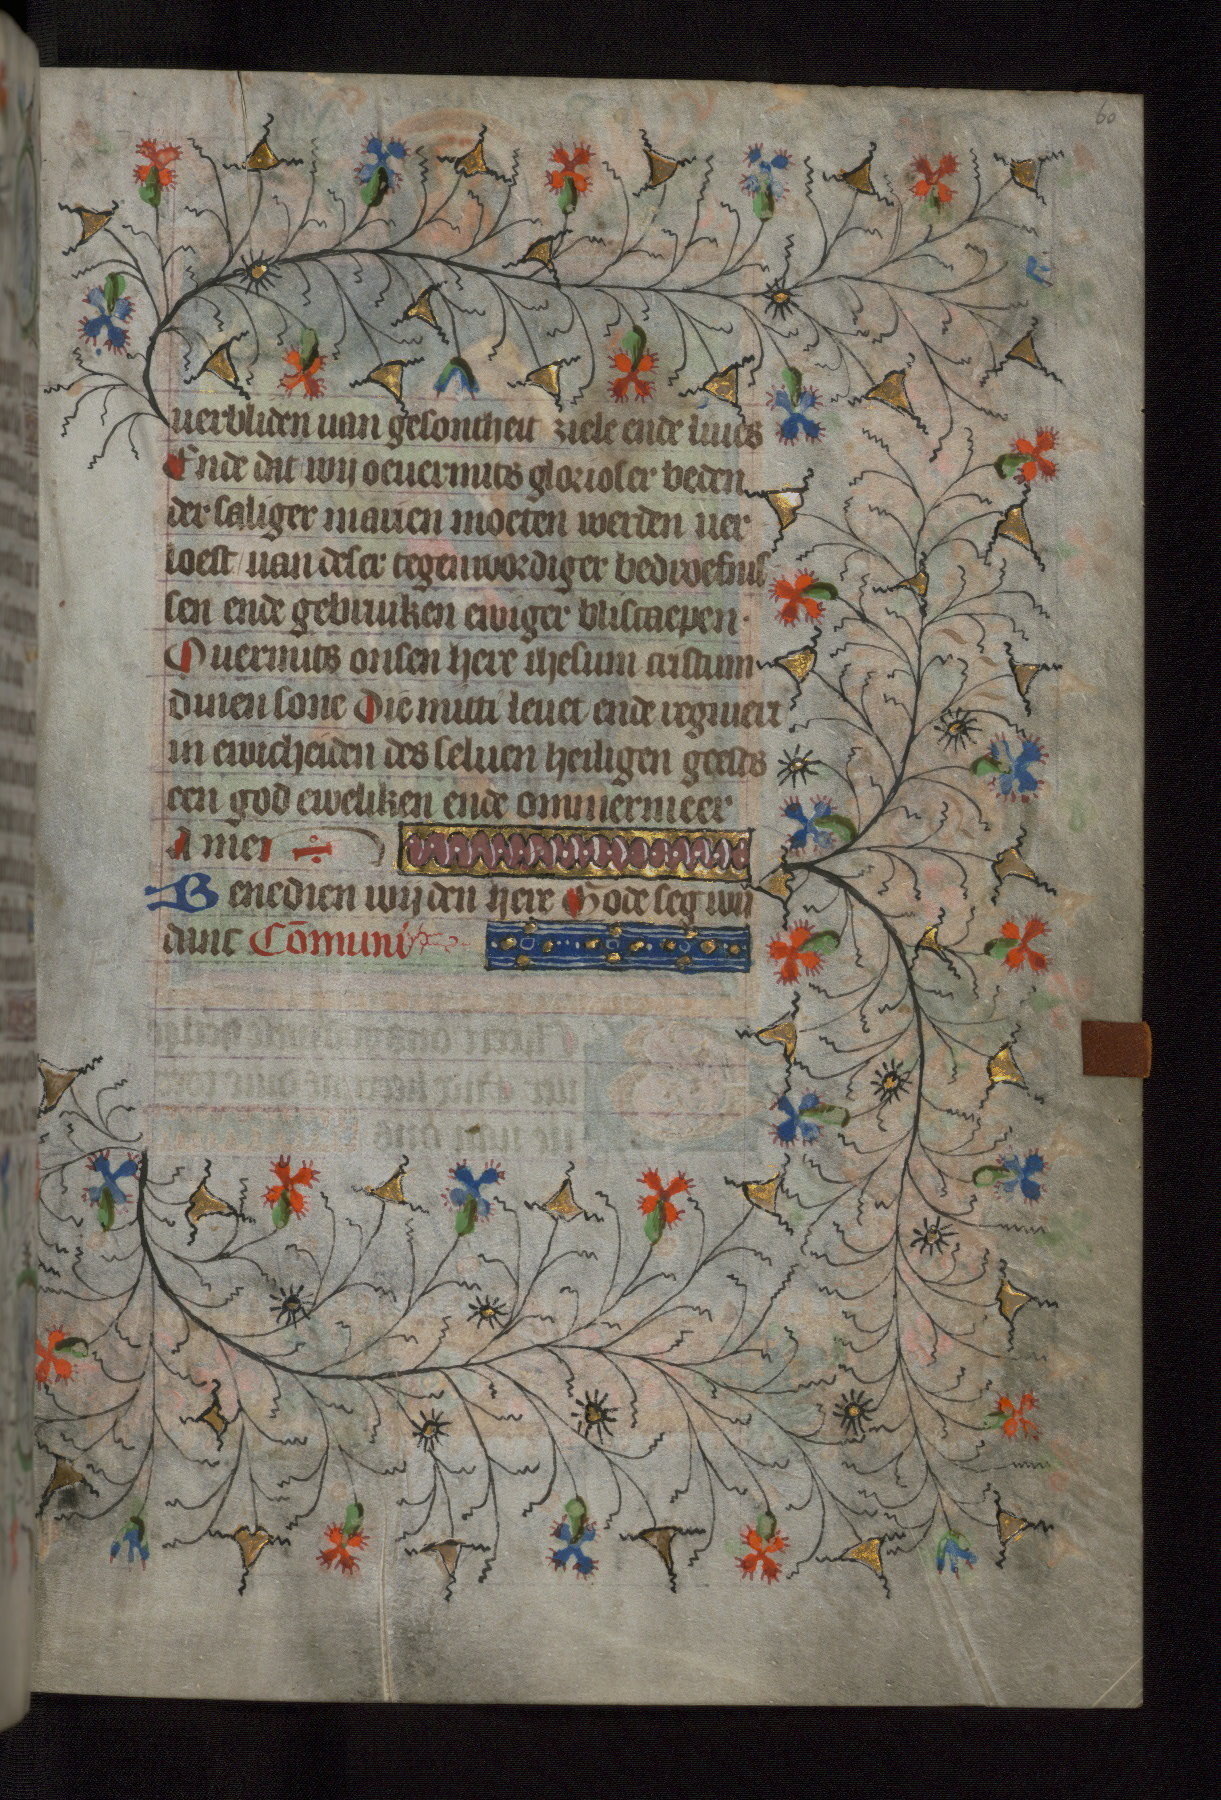 60
uerbliden uan gesontheit ziele ende liues
Ende dat wij oeuermits glorioser beden
der saliger marien moeten werden uer
loest uan deser tegenwordiger bedroefnis
sen ende gebruuken ewiger bliscaepen.
Ouermits onsen here ihesum cristum
dinen sone Die mitti leuet ende regniert
in ewicheiden des seluen heiligen geests
een god eweliken ende ommermeer
Amen
Benedien wij den here Gode seg wij
danc Cōmuni